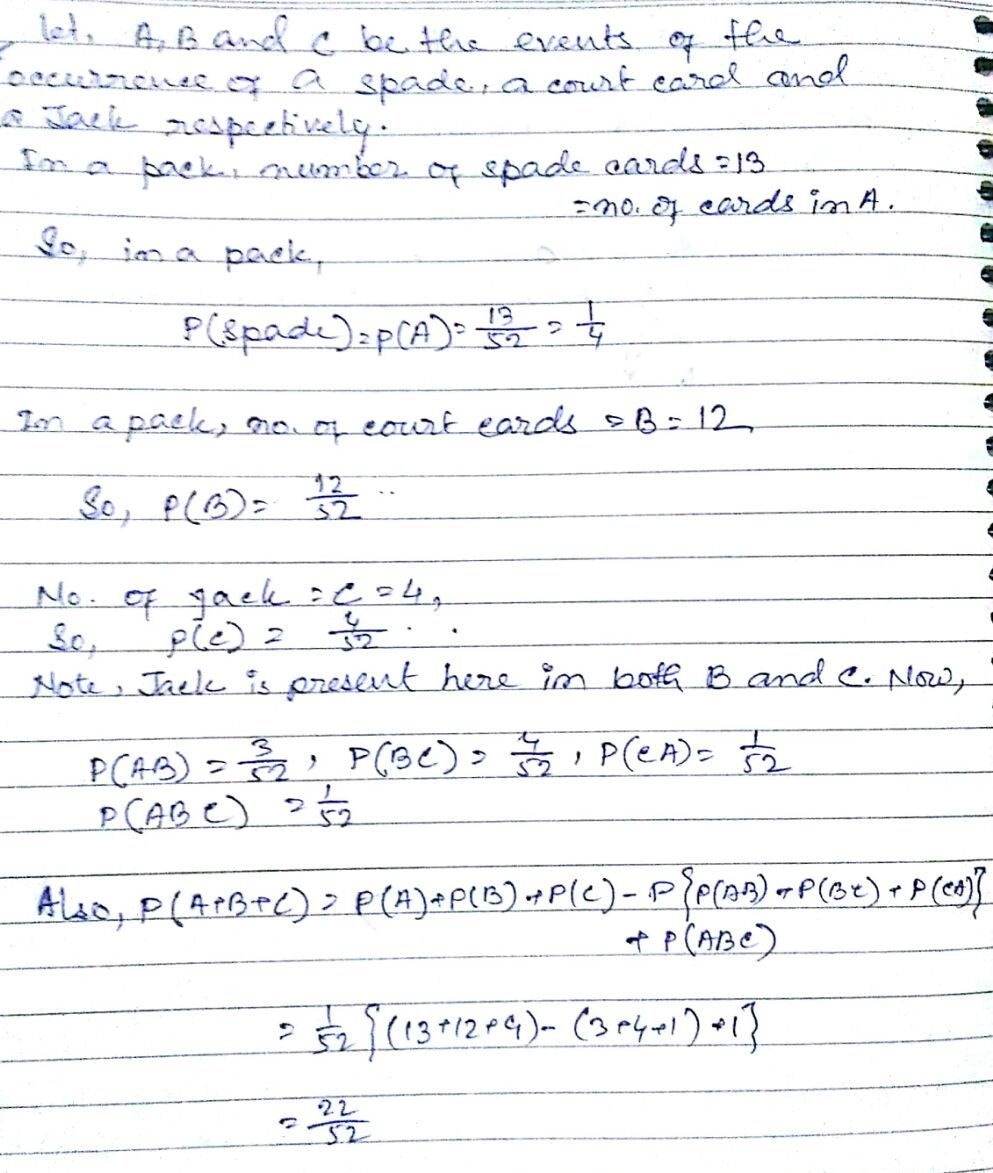 let, A, B and C be the events of the
occurrence of a spade, a court card and
a Jack respectively.
In a pack, number of spade cards = 13
= no. of cards in A.
So, in a pack,
P(spade) = P(A) = 13/52 = 1/4
In a pack, no. of court cards = B = 12,
So, P(B) = 12/52
No. of jack = C = 4,
So, P(C) = 4/52
Note, Jack is present here in both B and C. Now,
P(AB) = 3/52, P(BC) = 4/52, P(CA) = 1/52
P(ABC) = 1/52
Also, P(A+B+C) = P(A)+P(B)+P(C) - P{P(AB)+P(BC)+P(CA)}
+ P(ABC)
= 1/52 {(13+12+4) - (3+4+1) + 1}
= 22/52